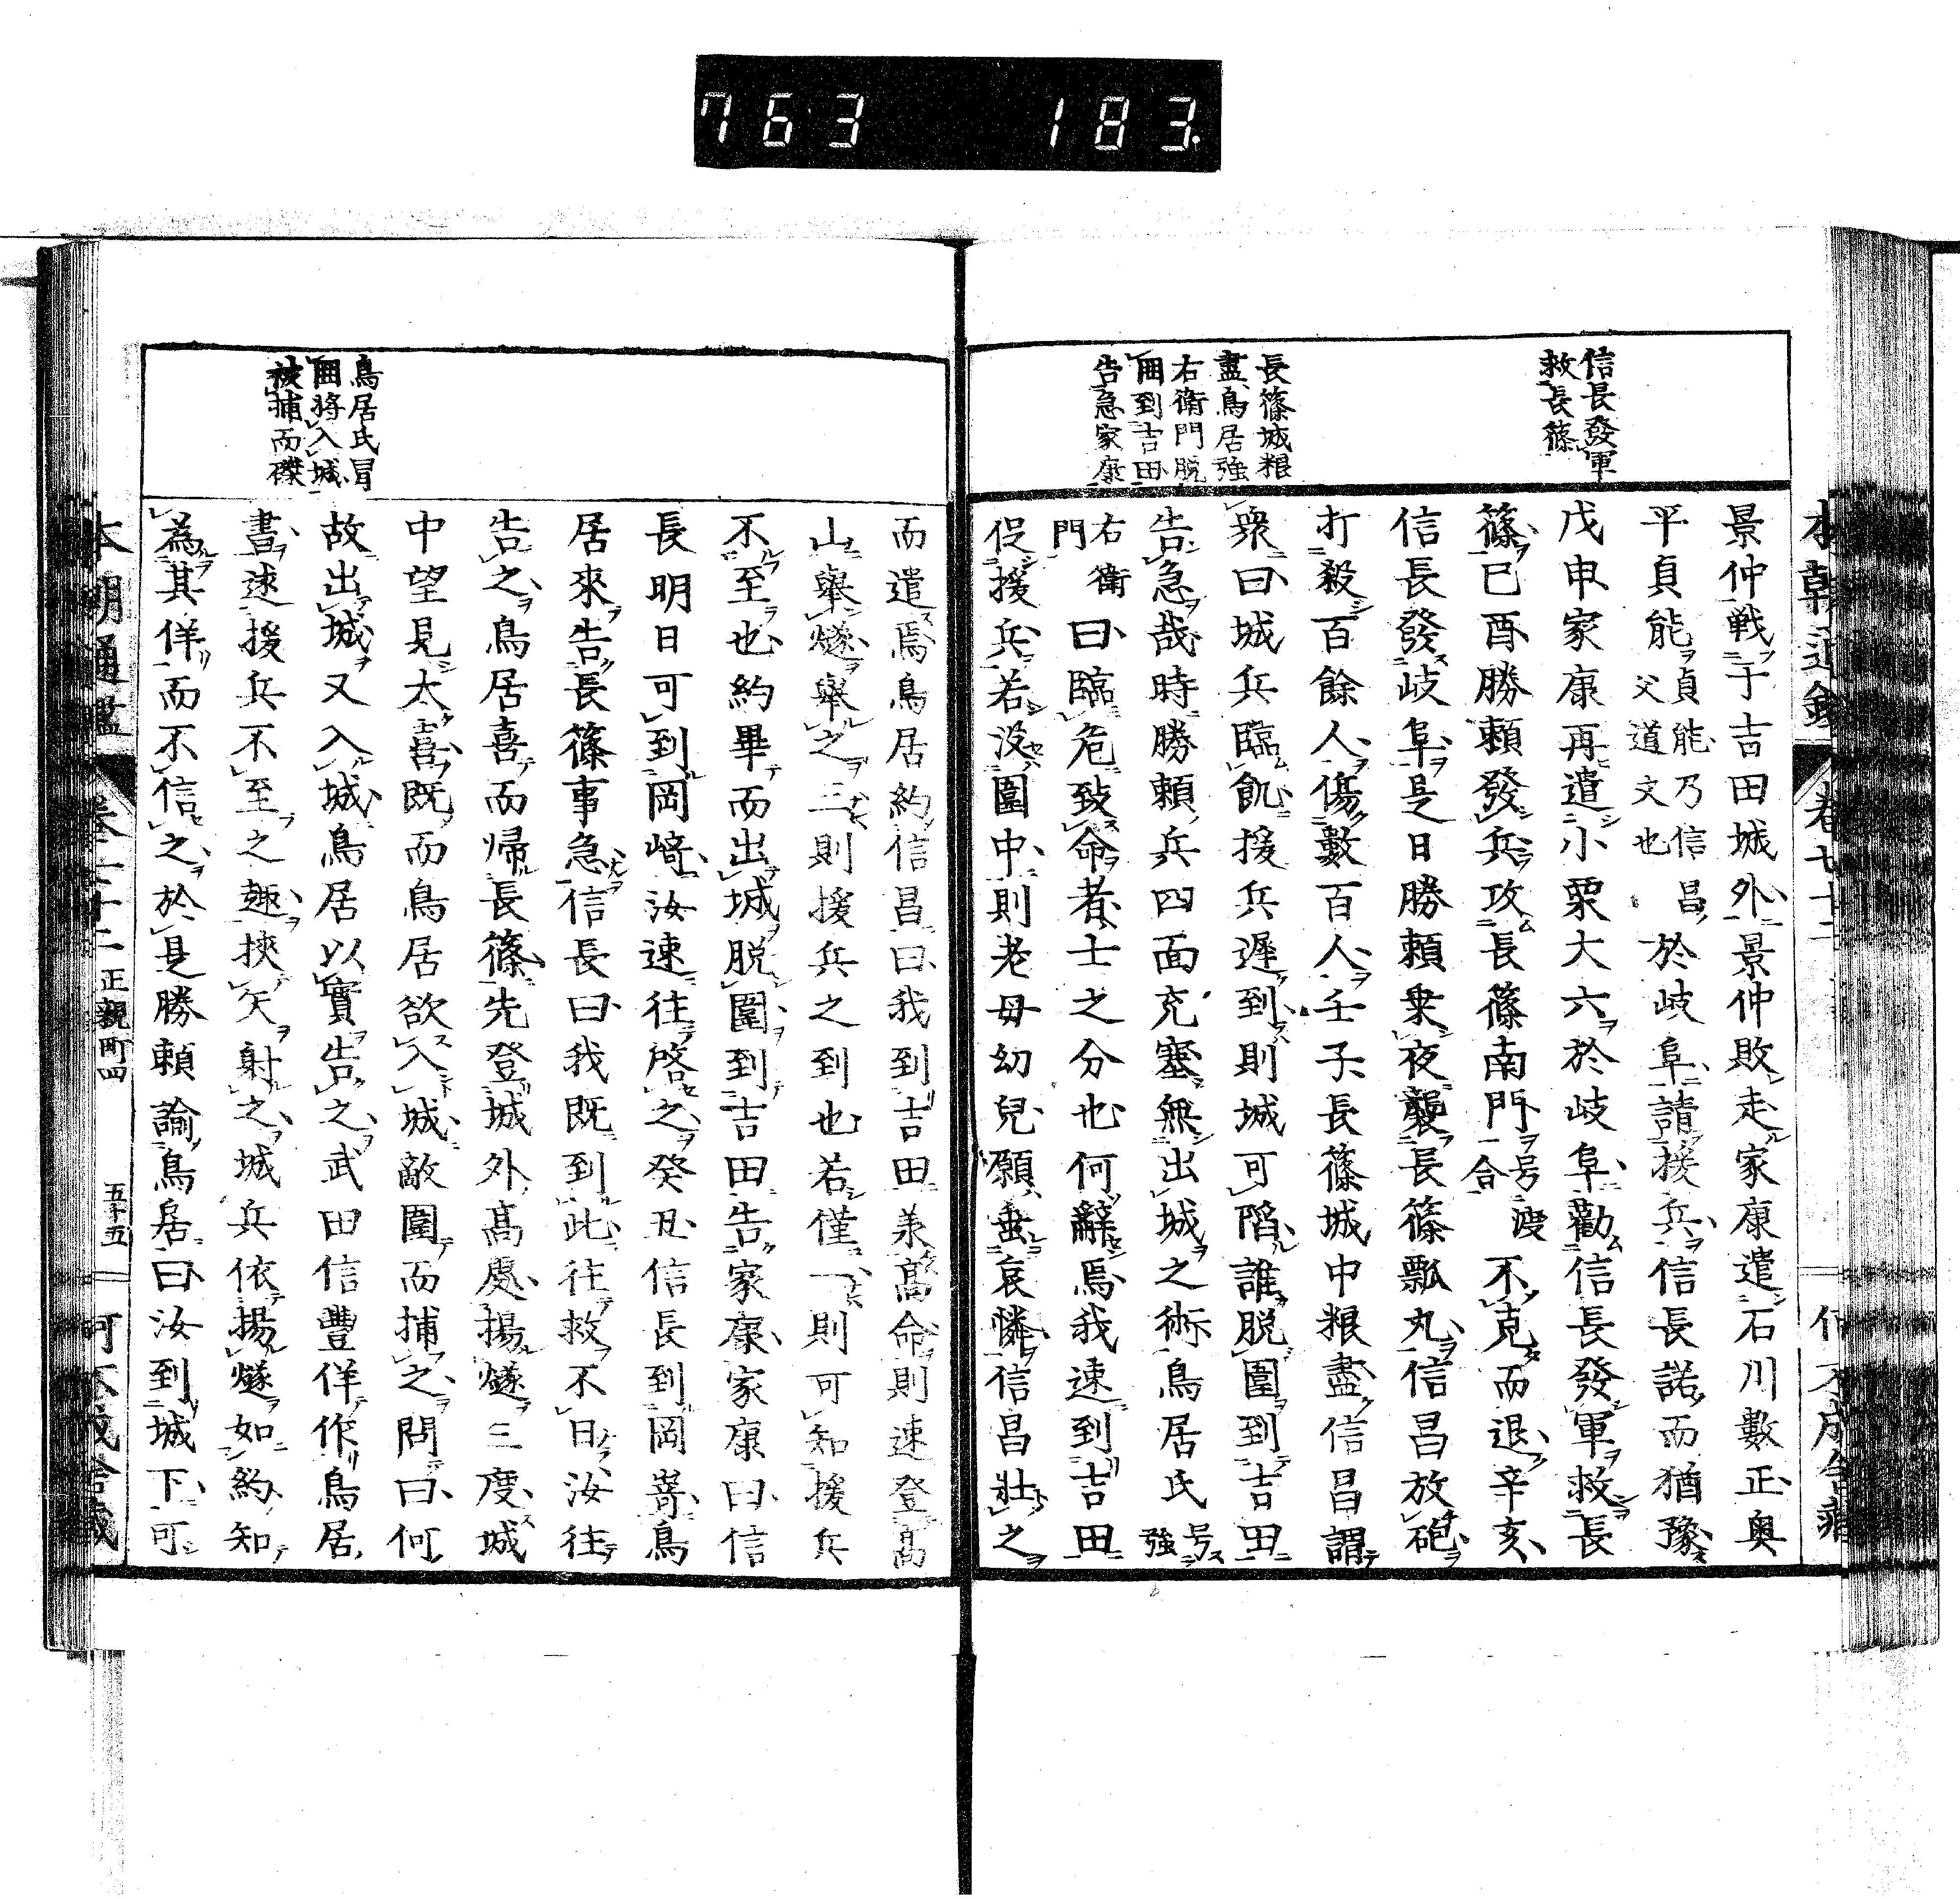 763 183.
信長發軍
救長篠
長篠城粮
盡鳥居強
右衛門脱
囲到吉田
告急家康
景仲戦于吉田城外景仲敗走家康遣石川數正奥
平貞能貞能乃信昌父道文也於岐阜請援兵信長諾而猶豫
戊申家康再遣小栗大六於岐阜勸信長發軍救長
篠己酉勝頼發兵攻長篠南門号渡合不克而退辛亥
信長發岐阜是日勝頼乗夜襲長篠瓢丸信昌放砲
打殺百餘人傷數百人壬子長篠城中粮盡信昌謂
衆曰城兵臨飢援兵遲到則城可陷誰脱圍到吉田
告急哉時勝頼兵四面充塞無出城之術鳥居氏号強
右衛門曰臨危致命者士之分也何辭焉我速到吉田
促援兵若没圍中則老母幼兒願垂哀憐信昌壯之
鳥居氏冒
囲將入城
被捕而磔
而遣焉鳥居約信昌曰我到吉田兼高命則速登高
山舉燧舉之三則援兵之到也若僅一則可知援兵
不至也約畢而出城脱圍到吉田告家康家康曰信
長明日可到岡﨑汝速往啓之癸丑信長到岡嵜鳥
居來告長篠事急信長曰我既到此往救不日汝往
告之鳥居喜而帰長篠先登城外高處揚燧三度城
中望見太喜既而鳥居欲入城敵圍而捕之問曰何
故出城又入城鳥居以實告之武田信豐佯作鳥居
書述援兵不至之趣挾矢射之城兵依揚燧如約知
為其佯而不信之於是勝頼諭鳥居曰汝到城下可
本朝通鑑 卷七十二 正親町四 五十五